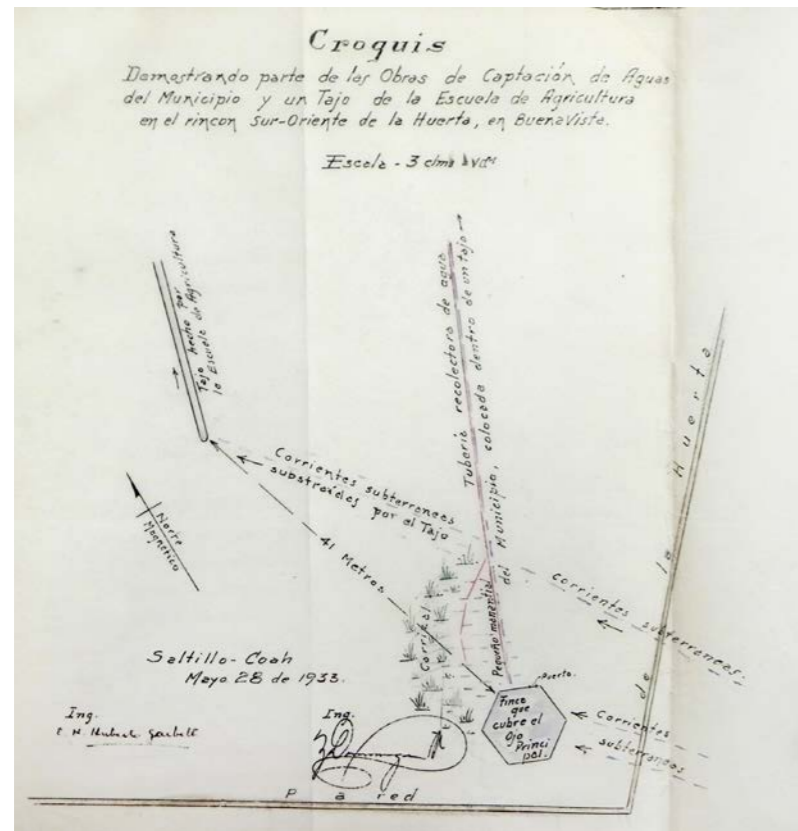 Croquis
Demostrando parte de las Obras de Captación de Aguas
del Municipio y un Tajo de la Escuela de Agricultura
en el rincon Sur-Oriente de la Huerta, en BuenaVista.
Escala - 3
Tajo hecho por
la Escuela de Agricultura
Tuberia recolectora de agua
del Municipio, colocada dentro de un tajo
Corrientes subterraneas
substraídas por el Tajo
41 Metros
Norte
Magnético
Carrizal
Pequeño manantial
corrientes subterraneas.
Pared de la Huerta
Puerta.
Finca
que
cubre el
Ojo
Princi
pal.
Corrientes
subterraneas
Saltillo-Coah
Mayo 28 de 1933.
Ing.
Ing.